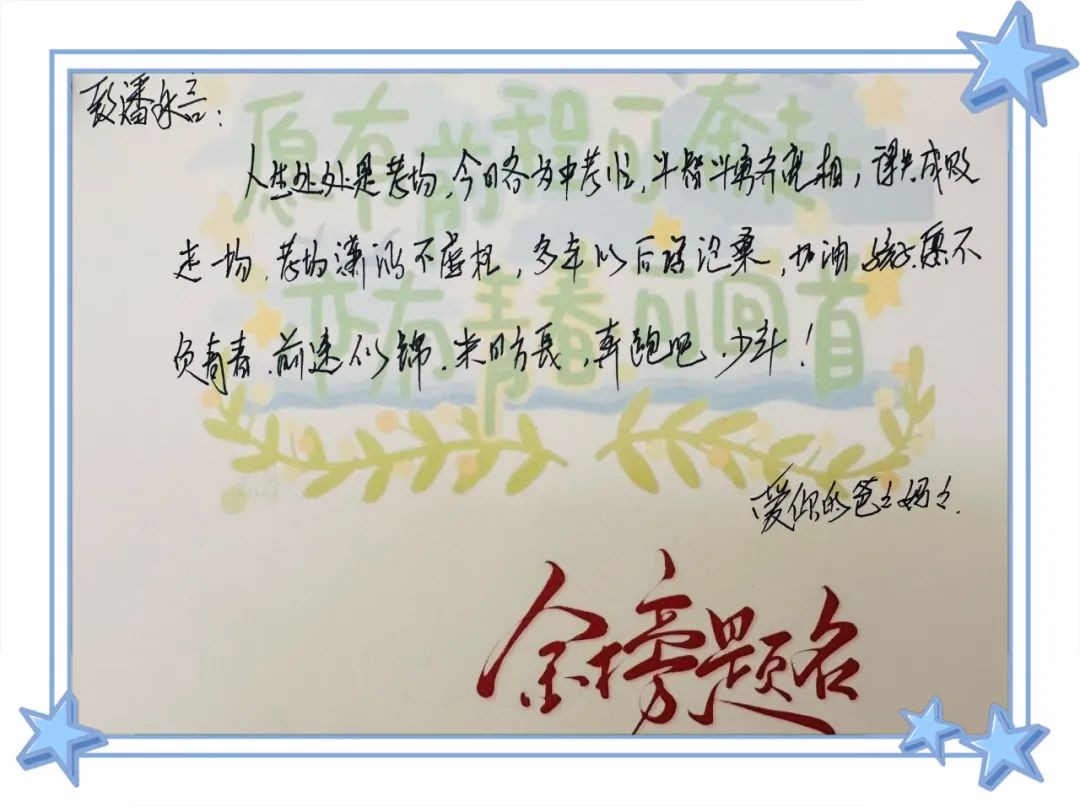 致潘永言：
人生处处是考场，今日各为中考忙，斗智斗勇齐亮相，谋其成败
走一场，考场潇洒不虚枉，多年以后话沧桑，加油孩子，愿不
负青春，前途似锦，来日方長，奔跑吧，少年！
愿有前程可奔赴
亦有青春可回首
爱你的爸爸妈妈.
金榜题名